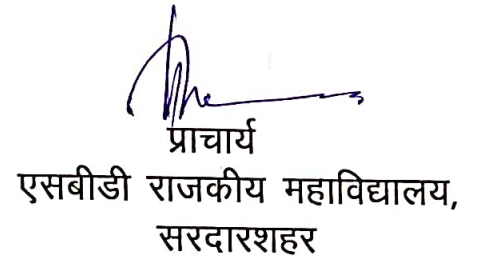 प्राचार्य
एसबीडी राजकीय महाविद्यालय,
सरदारशहर